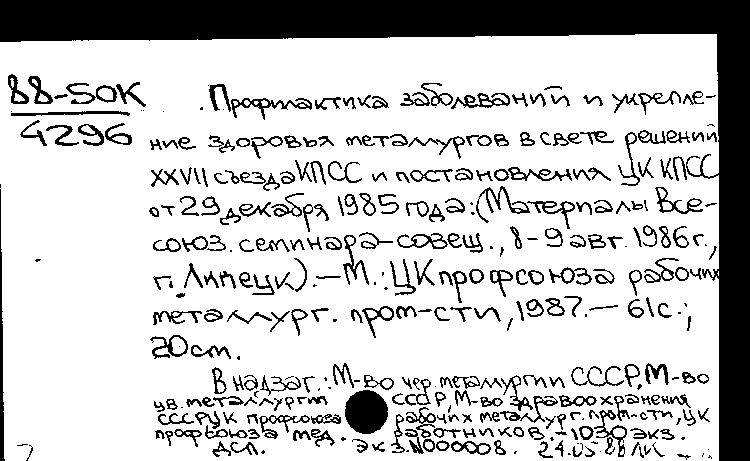 88-50К
4296
Профилактика заболеваний и укрепле-
ние здоровья металлургов в свете решений
XXVII съезда КПСС и постановления ЦК КПСС
от 29 декабря 1985 года: (Материалы Все-
союз. семинара-совещ., 8-9 авг. 1986 г.,
г. Липецк). - М.: ЦК профсоюза рабочих
металлург. пром-сти, 1987. - 61 с.;
20 см.
В надзаг.: М-во чер. металлургии СССР, М-во
цв. металлургии СССР, М-во здравоохранения
СССР, ЦК профсоюза рабочих металлург. пром-сти, ЦК
профсоюза мед. работников. - 1030 экз.
ДСП. экз. N000008. 24.05.88